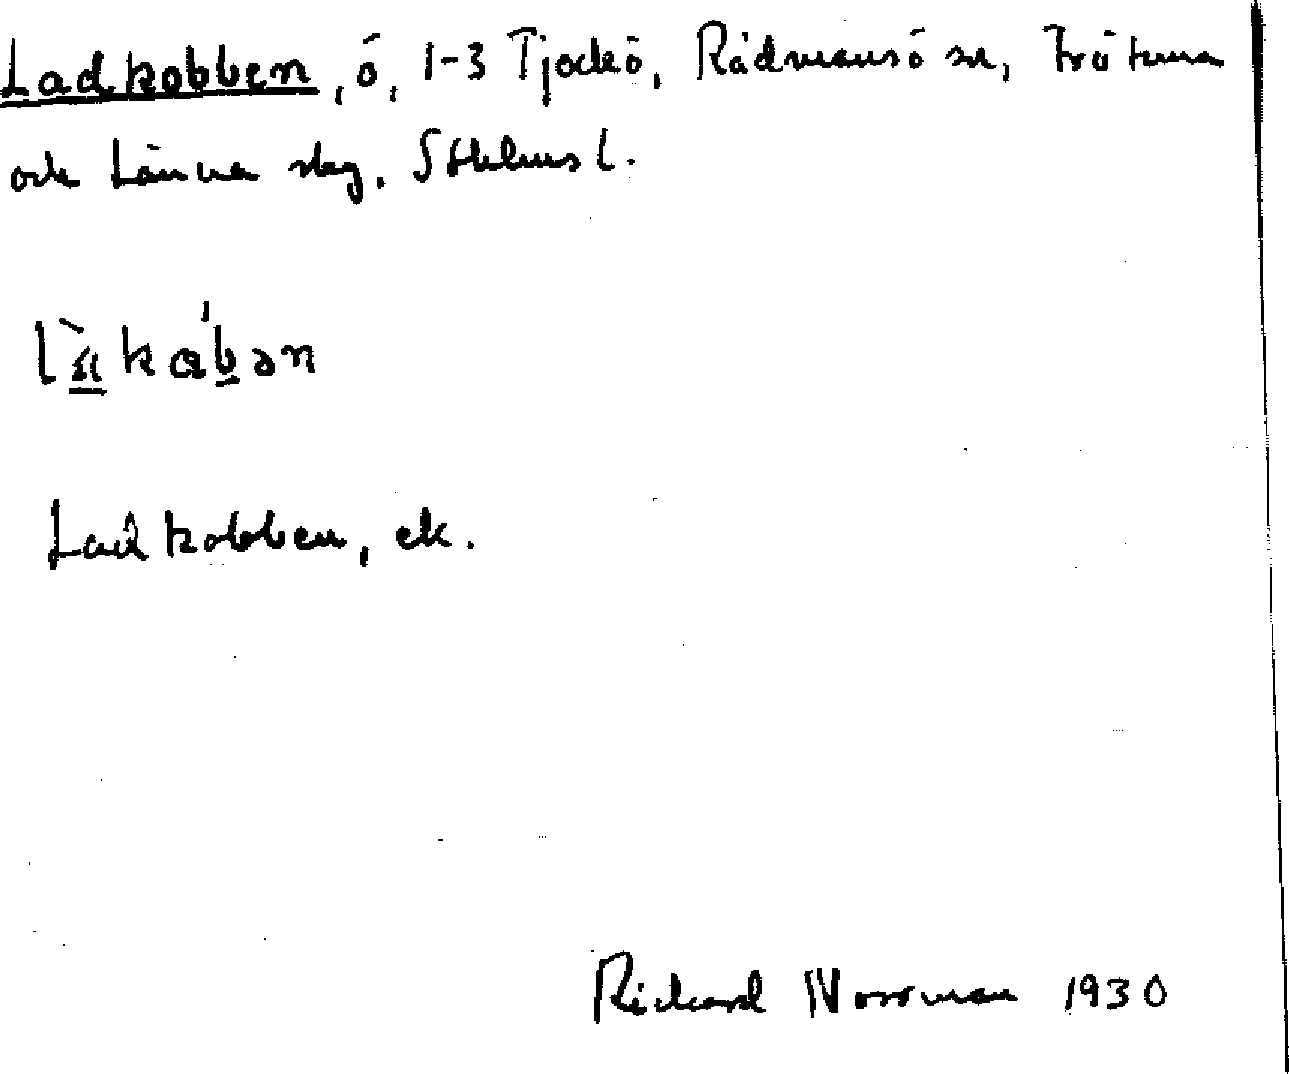 Ladkobben, ö, 1-3 Tjockö, Rådmansö sn, Frötuna
och Länna slg. Sthlms l.
Ladkobben, ek.
Rickard Norrman 1930